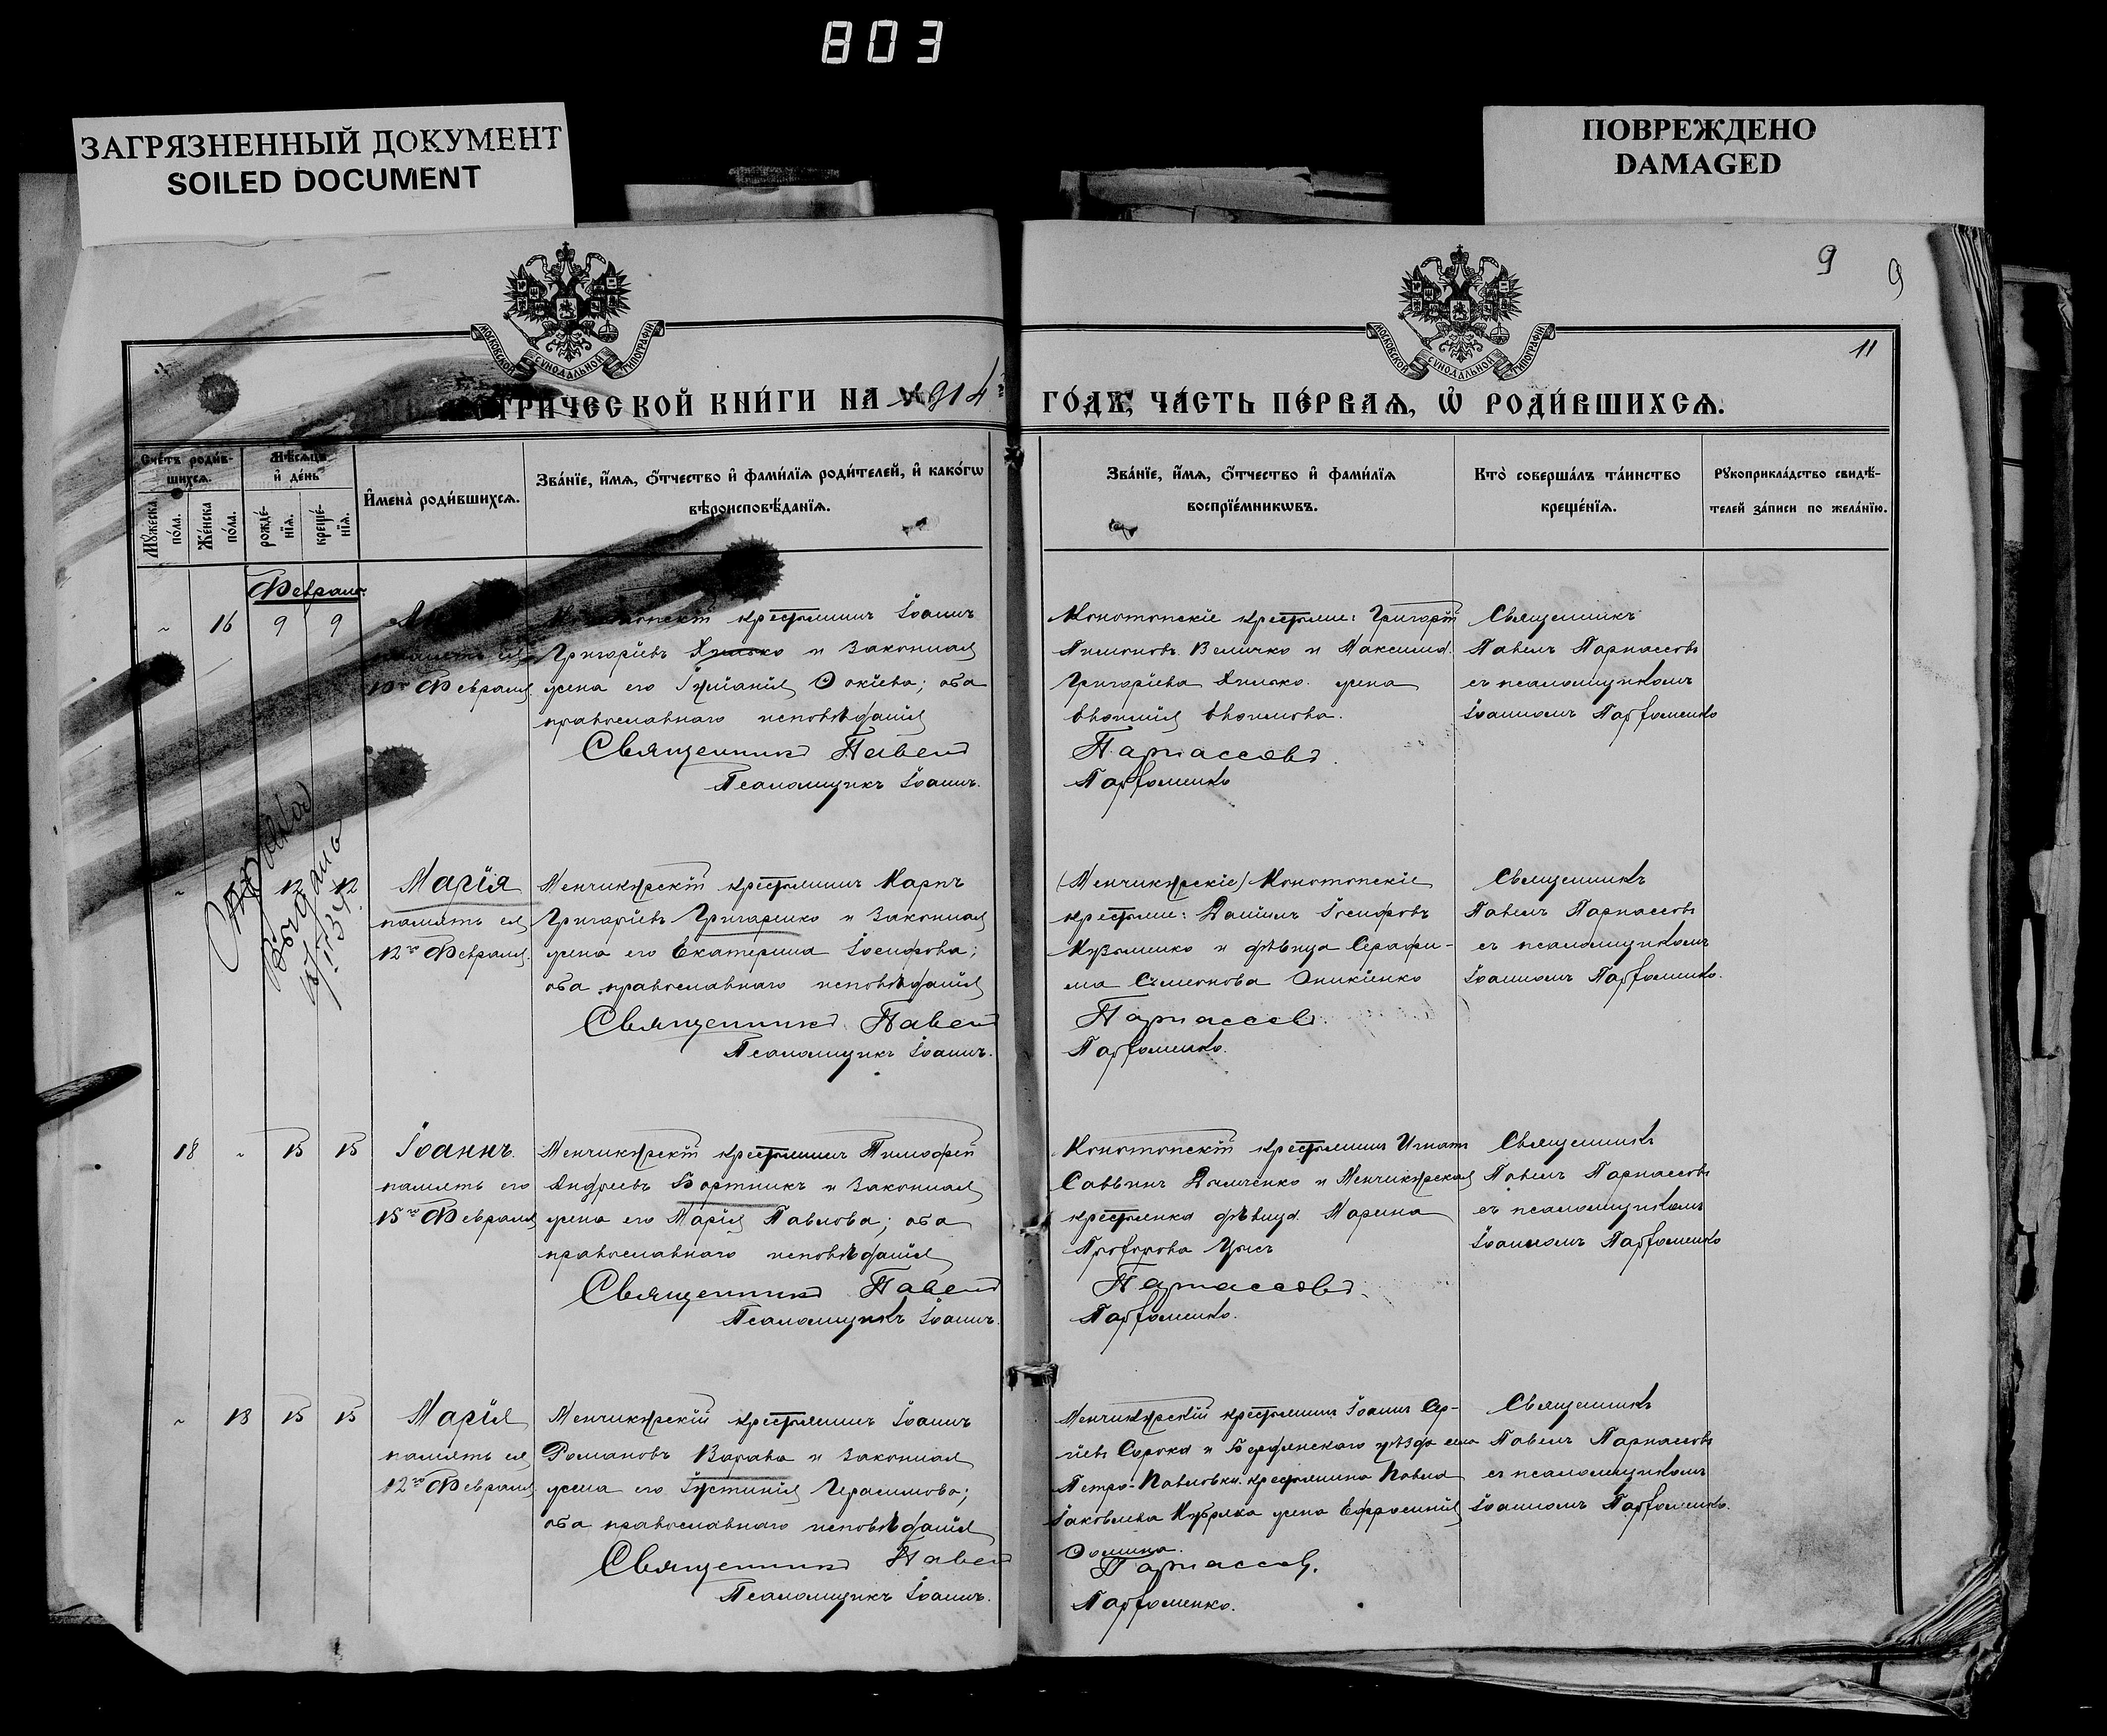 803
ЗАГРЯЗНЕННЫЙ ДОКУМЕНТ
SOILED DOCUMENT
ПОВРЕЖДЕНО
DAMAGED
9
9
11
МОСКОВСКОЙ СУНОДАЛЬНОЙ ТИПОГРАФІИ
МОСКОВСКОЙ СУНОДАЛЬНОЙ ТИПОГРАФІИ
МЕТРИ́ЧЕСКОЙ КНИ́ГИ НА 1914й
ГО́ДЪ, ЧА́СТЬ ПЕ́РВАѦ, Ѡ҆ РОДИ́ВШИХСѦ.
Сче́тъ роди́в-
шихсѧ.
Мꙋ́жеска
по́ла.
Же́нска
по́ла.
Мѣ́сѧцъ
и҆ де́нь
рожде́-
нїѧ.
креще́-
нїѧ.
И҆мена̀ роди́вшихсѧ.
Зва́нїе, и҆́мѧ, ѻ҆́тчество и҆ фами́лїѧ роди́телей, и҆ како́гѡ
вѣроисповѣ́данїѧ.
Зва́нїе, и҆́мѧ, ѻ҆́тчество и҆ фами́лїѧ
воспрїе́мникѡвъ.
Кто̀ соверша́лъ та́инство
креще́нїѧ.
Рꙋкоприкла́дство свидѣ́-
телей за́писи по жела́нїю.
Февраль
16 9 9
10го Февраля
крестьянинъ Іоаннъ
Григоріевъ Хилько и законная
жена его Іуліанія Фокіева; оба
православнаго исповѣданія
Священникъ Павелъ
Псаломщикъ Іоаннъ
Конотопскіе крестьяне: Григорій
Пимоновъ Величко и Максима
Григоріева Хилько жена
Евфимія Евфимова.
Парнассовъ.
Парфоменко
Священникъ
Павелъ Парнассовъ
съ псаломщикомъ
Іоанномъ Парфоменко
Справка
выдана
12 12
Марія
память ея
12го Февраля.
Менчикурскій крестьянинъ Карпъ
Григоріевъ Григоренко и законная
жена его Екатерина Іосифова;
оба православнаго исповѣданія
Священникъ Павелъ
Псаломщикъ Іоаннъ.
(Менчикурскіе) Конотопскіе
крестьяне: Даніилъ Іосифовъ
Кузьменко и дѣвица Серафи-
ма Симеонова Оникіенко
Парнассовъ.
Парфоменко.
Священникъ
Павелъ Парнассовъ
съ псаломщикомъ
Іоанномъ Парфоменко.
18 15 15
Іоаннъ.
память его
15го Февраля
Менчикурскій крестьянинъ Тимофей
Андреевъ Бортникъ и законная
жена его Марія Павлова; оба
православнаго исповѣданія
Священникъ Павелъ
Псаломщикъ Іоаннъ.
Конотопскій крестьянинъ Игнатъ
Саввинъ Демченко и Менчикурская
крестьянка дѣвица Марина
Прохорова Усъ
Парнассовъ.
Парфоменко.
Священникъ
Павелъ Парнассовъ
съ псаломщикомъ
Іоанномъ Парфоменко
18 15 15
Марія
память ея
12го Февраля
Менчикурскій крестьянинъ Іоаннъ
Романовъ Варава и законная
жена его Іустинія Герасимова;
оба православнаго исповѣданія
Священникъ Павелъ
Псаломщикъ Іоаннъ.
Менчикурскій крестьянинъ Іоаннъ Сер-
гіевъ Сорока и Бердянскаго уѣзда села
Петро-Павловки крестьянина Павла
Іаковлева Кубряка жена Ефросинія
Фомина.
Парнассовъ.
Парфоменко.
Священникъ
Павелъ Парнассовъ
съ псаломщикомъ
Іоанномъ Парфоменко.